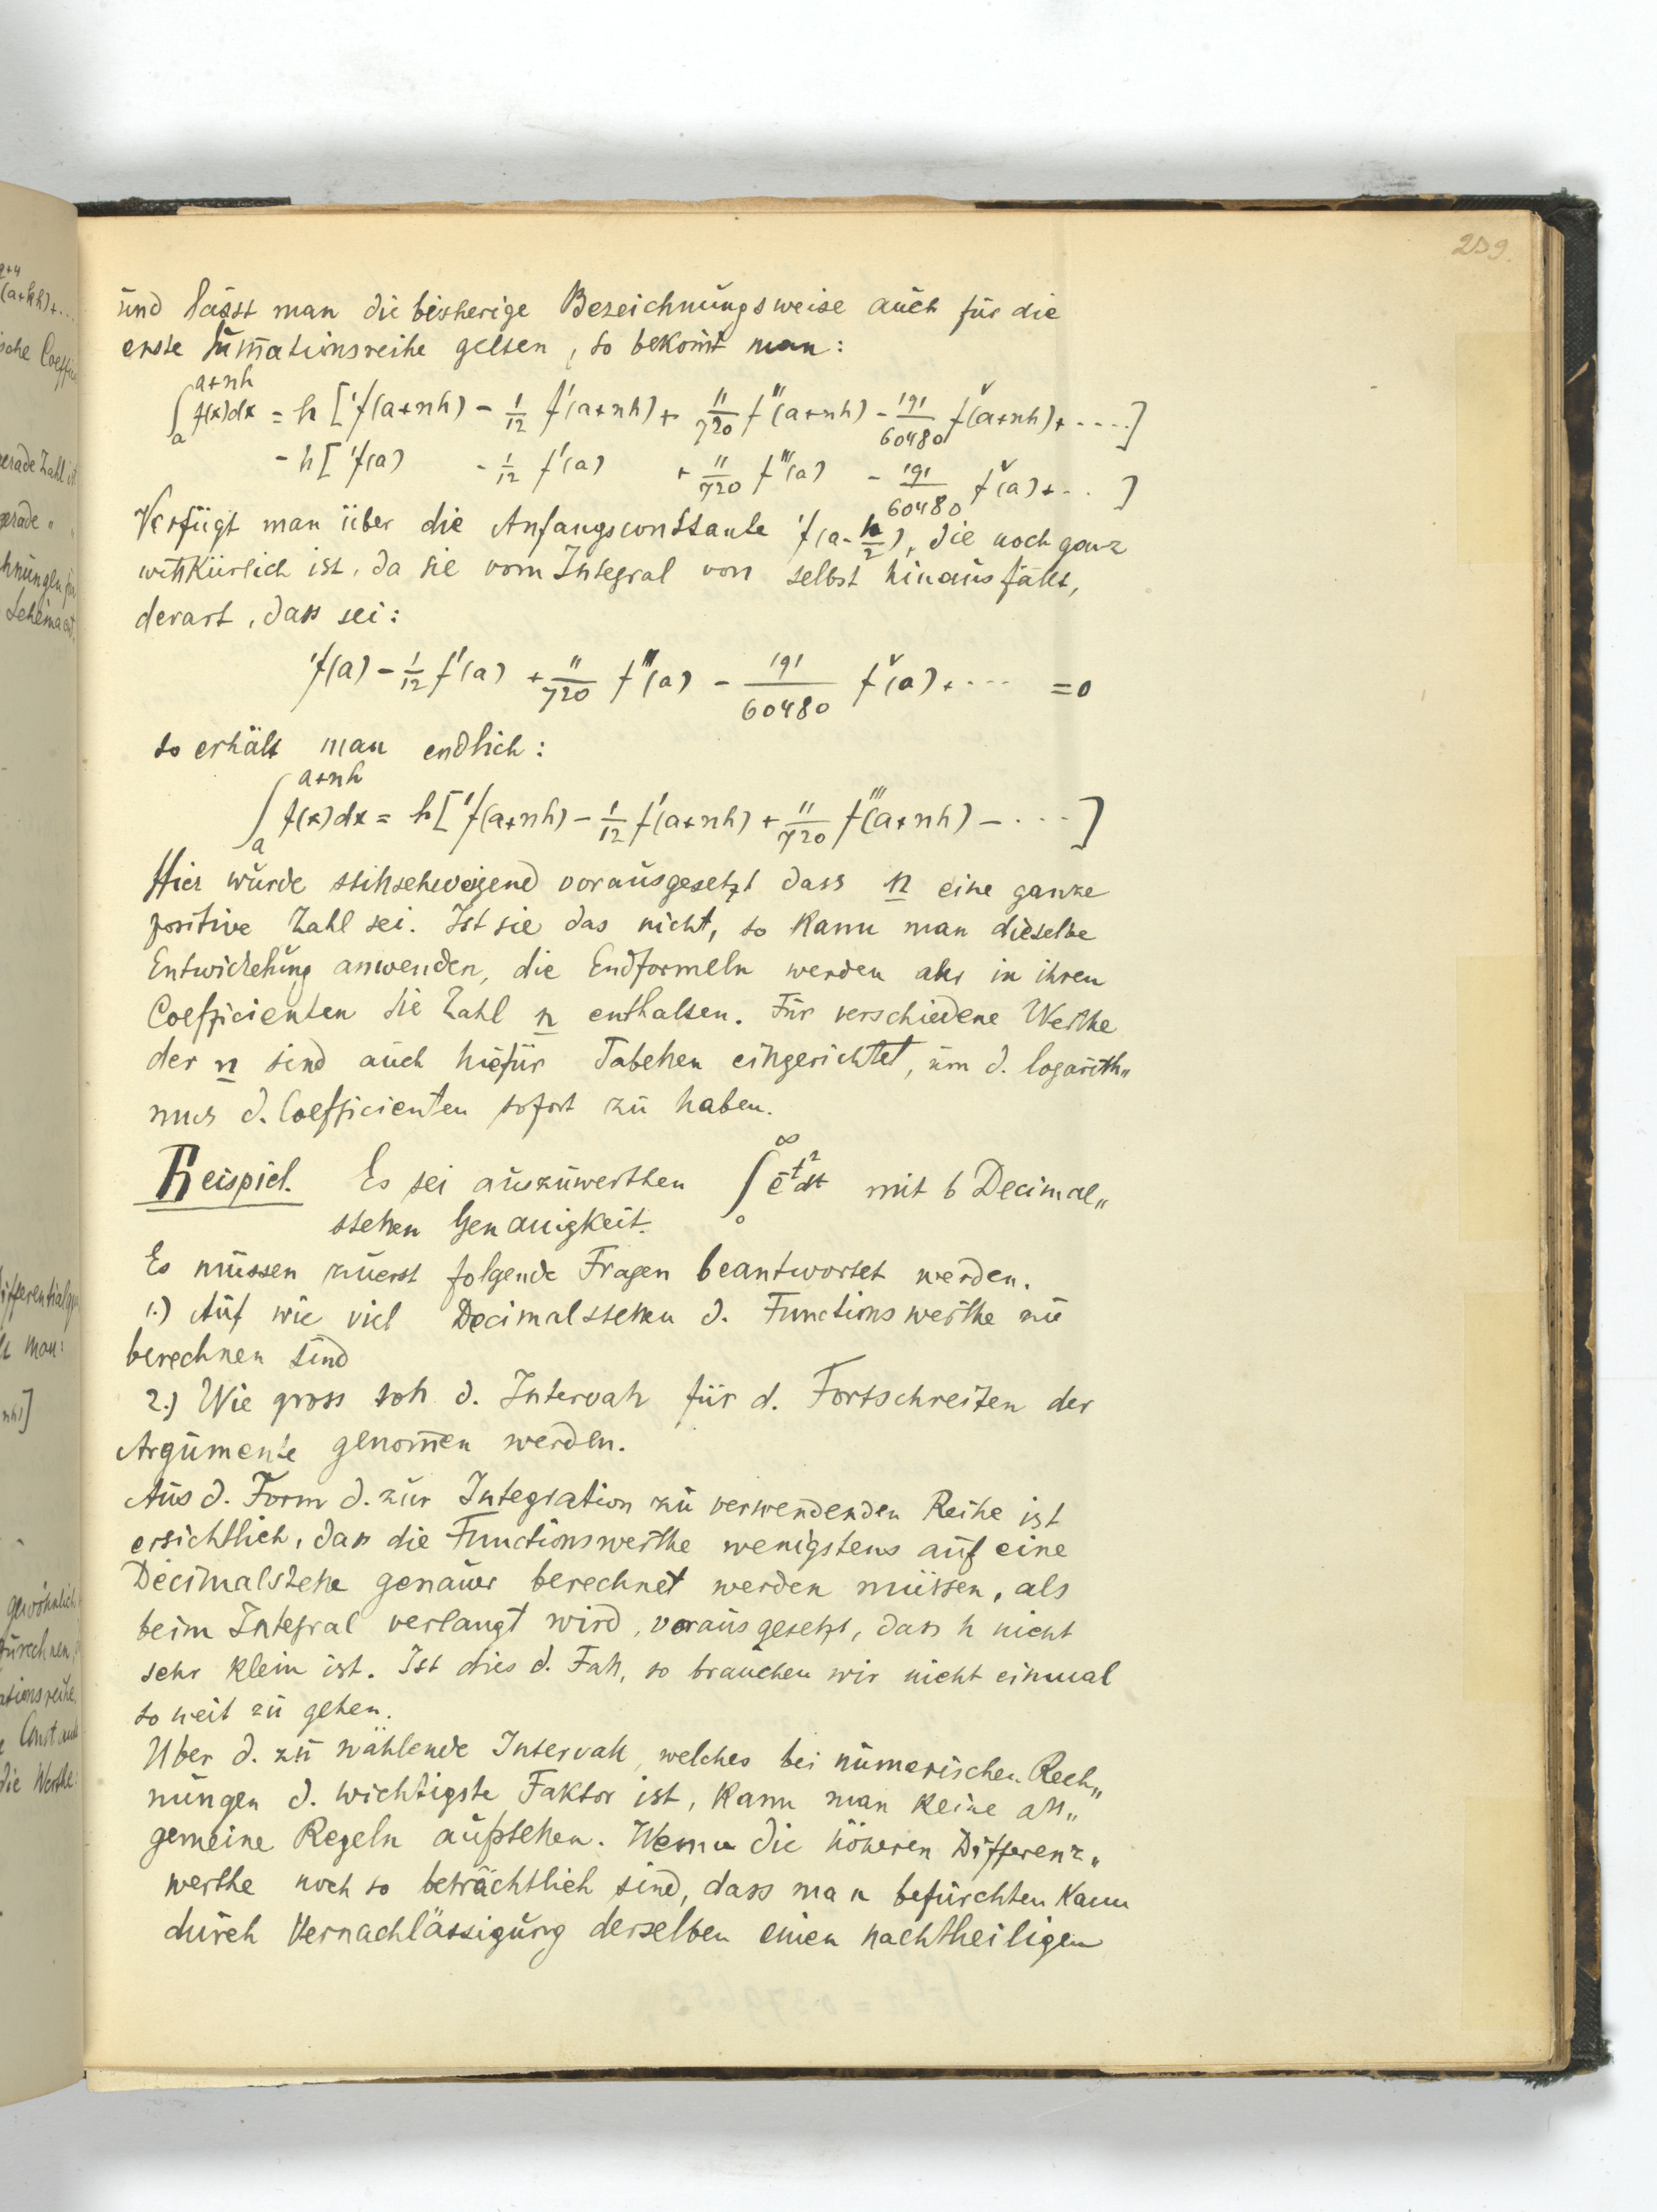 239.
und lässt man die bisherige Bezeichnungsweise auch für die
erste Sum̅ationsreihe gelten, so bekom̅t man:
∫ₐ^{a+nh} f(x)dx = h ['f(a+nh) - 1/12 f'(a+nh) + 11/720 f'''(a+nh) - 191/60480 f^v(a+nh) + ....]
- h ['f(a) - 1/12 f'(a) + 11/720 f'''(a) - 191/60480 f^v(a) + ... ]
Verfügt man über die Anfangsconstante 'f(a - h/2), die noch ganz
willkürlich ist, da sie vom Integral von selbst hinausfällt,
derart, dass sei:
'f(a) - 1/12 f'(a) + 11/720 f'''(a) - 191/60480 f^v(a) + ... = 0
so erhält man endlich:
∫ₐ^{a+nh} f(x)dx = h ['f(a+nh) - 1/12 f'(a+nh) + 11/720 f'''(a+nh) - .... ]
Hier wurde stillschweigend vorausgesetzt dass n eine ganze
positive Zahl sei. Ist sie das nicht, so kann man dieselbe
Entwickelung anwenden, die Endformeln werden aber in ihren
Coefficienten die Zahl n enthalten. Für verschiedene Werthe
der n sind auch hiefür Tabellen eingerichtet, um d. logarith„
mus d. Coefficienten sofort zu haben.
Beispiel. Es sei auszuwerthen ∫₀^∞ e^{-t²}dt mit 6 Decimal„
stellen Genauigkeit.
Es müssen zuerst folgende Fragen beantwortet werden.
1.) Auf wie viel Decimalstellen d. Functionswerthe zu
berechnen sind
2.) Wie gross soll d. Intervall für d. Fortschreiten der
Argumente genom̅en werden.
Aus d. Form d. zur Integration zu verwendenden Reihe ist
ersichtlich, dass die Functionswerthe wenigstens auf eine
Decimalstelle genauer berechnet werden müssen, als
beim Integral verlangt wird, vorausgesetzt, dass h nicht
sehr klein ist. Ist dies d. Fall, so brauchen wir nicht einmal
so weit zu gehen.
Über d. zu wählende Intervall, welches bei numerischen Rech„
nungen d. wichtigste Faktor ist, kann man keine all„
gemeine Regeln aufstellen. Wenn die höheren Differenz„
werthe noch so beträchtlich sind, dass man befürchten kann
durch Vernachlässigung derselben einen nachtheiligen